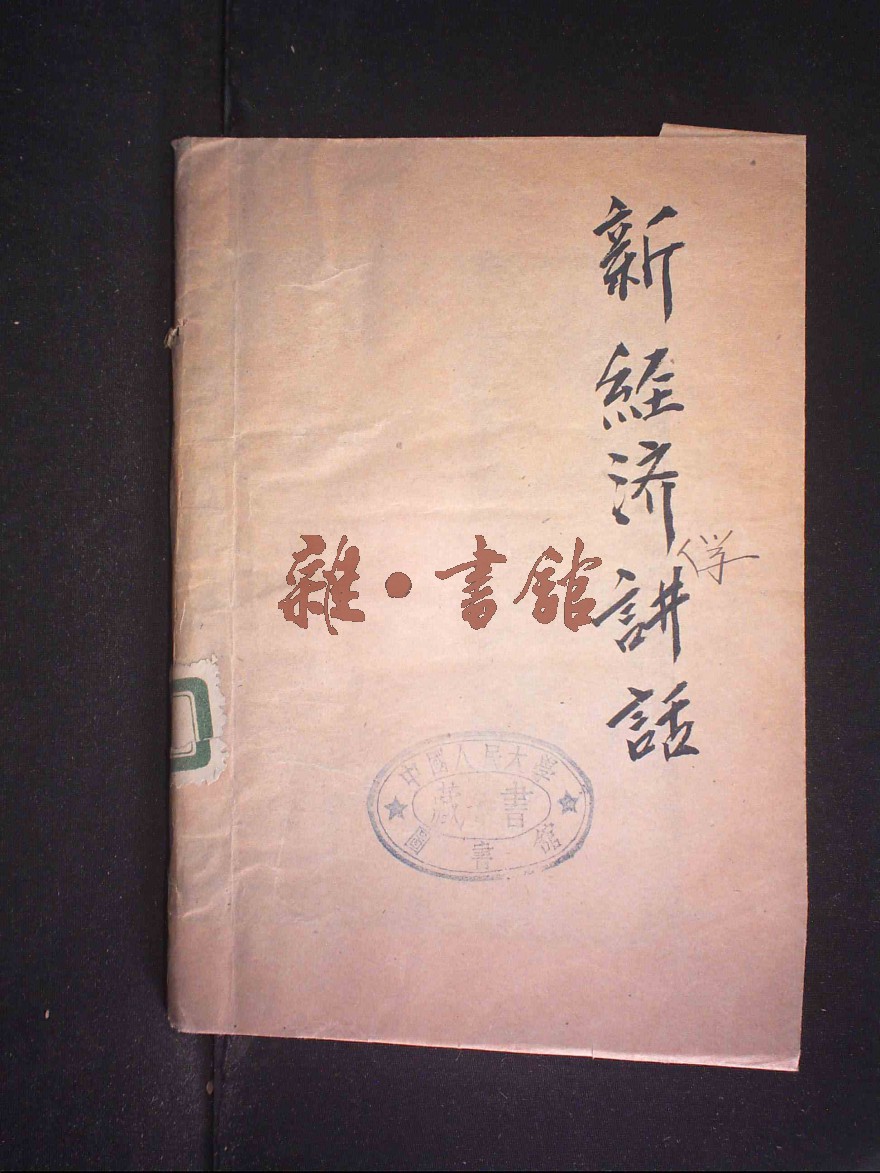 新经济讲話
学
雜·書館
中國人民大學
藏書
圖書館